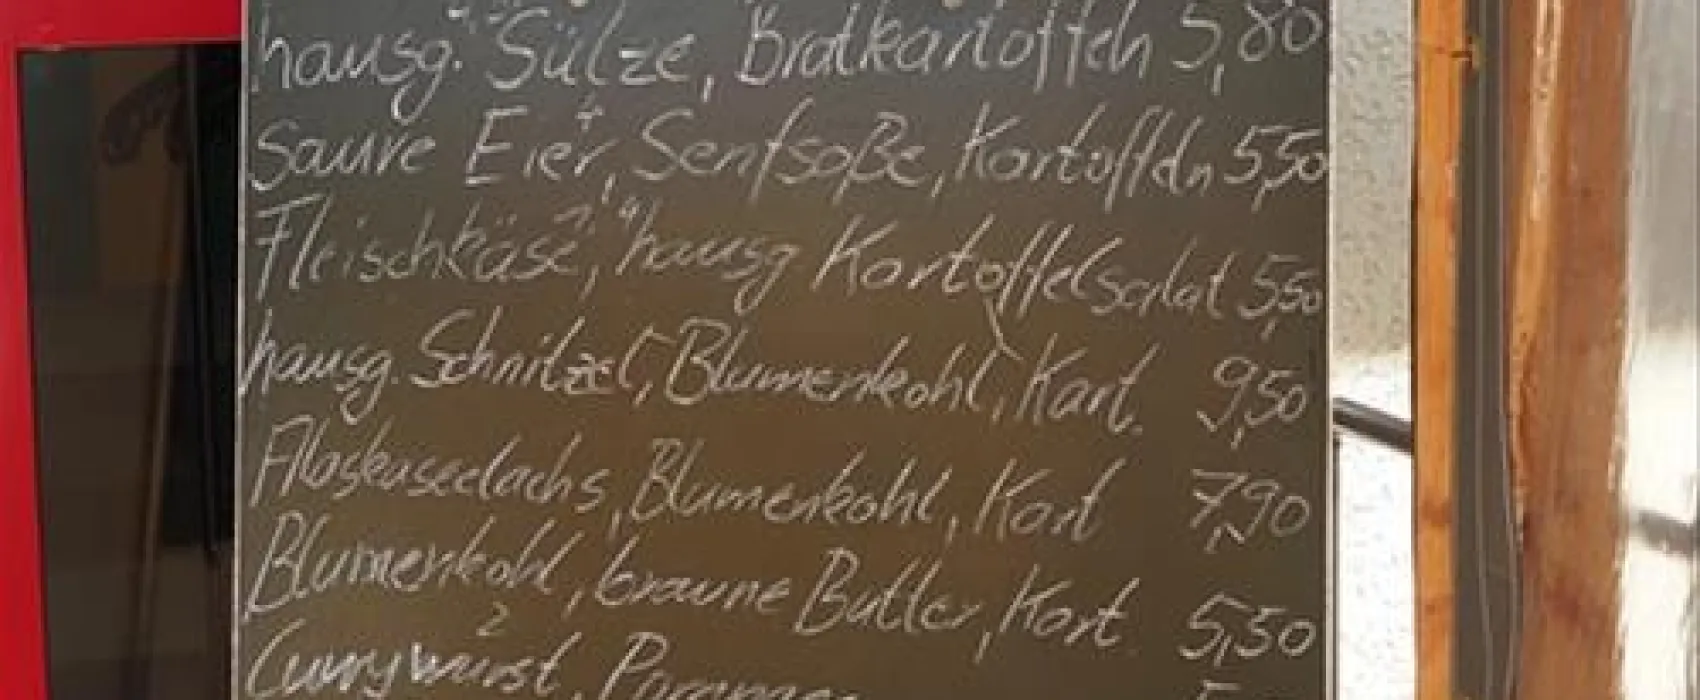 hausg. Sülze, Bratkartoffeln 5,80
Saure Eier, Senfsoße, Kartoffeln 5,50
Fleischkäse, hausg Kartoffelsalat 5,50
hausg. Schnitzel, Blumenkohl, Kart. 9,50
Alaskaseelachs, Blumenkohl, Kart 7,90
Blumenkohl, braune Butter, Kart. 5,50
Currywurst,